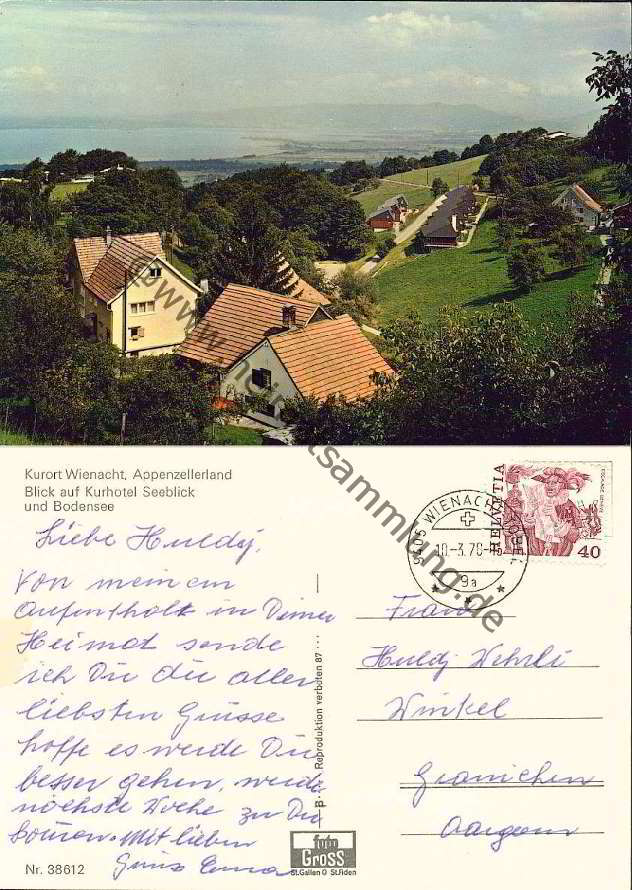 © www.heimatsammlung.de
Kurort Wienacht, Appenzellerland
Blick auf Kurhotel Seeblick
und Bodensee
HELVETIA
40
9405 WIENACHT
10.-3.78-15
9a
Liebe Huldy,
Von mein em
Aufenthalt in Deiner
Heimat sende
ich Dir die aller
liebsten Grüsse
hoffe es werde Dir
besser gehen, werde
nächste Woche zu Dir
kommen. Mit lieben
Gruss Erna
Reproduktion verboten 87
Frau
Huldy Wehrli
Winkel
Gränichen
Aargau
Gross
St.Gallen O St.Fiden
Nr. 38612